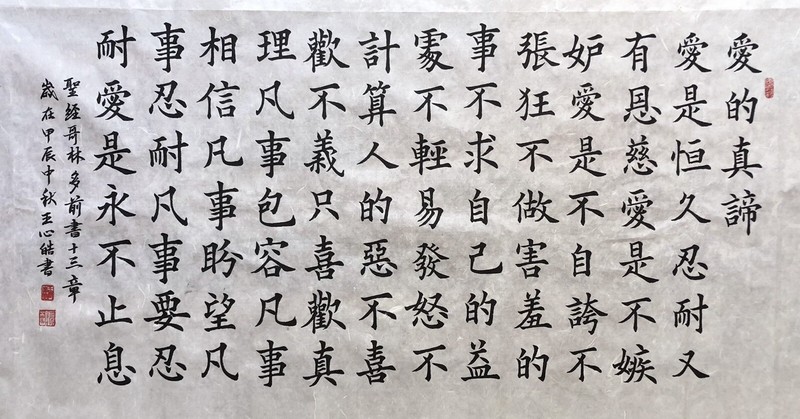 愛的真諦
愛是恒久忍耐又
有恩慈愛是不嫉
妒愛是不自誇不
張狂不做害羞的
事不求自己的益
處不輕易發怒不
計算人的惡不喜
歡不義只喜歡真
理凡事包容凡事
相信凡事盼望凡
事忍耐凡事要忍
耐愛是永不止息
聖經哥林多前書十三章
歲在甲辰中秋王心皓書